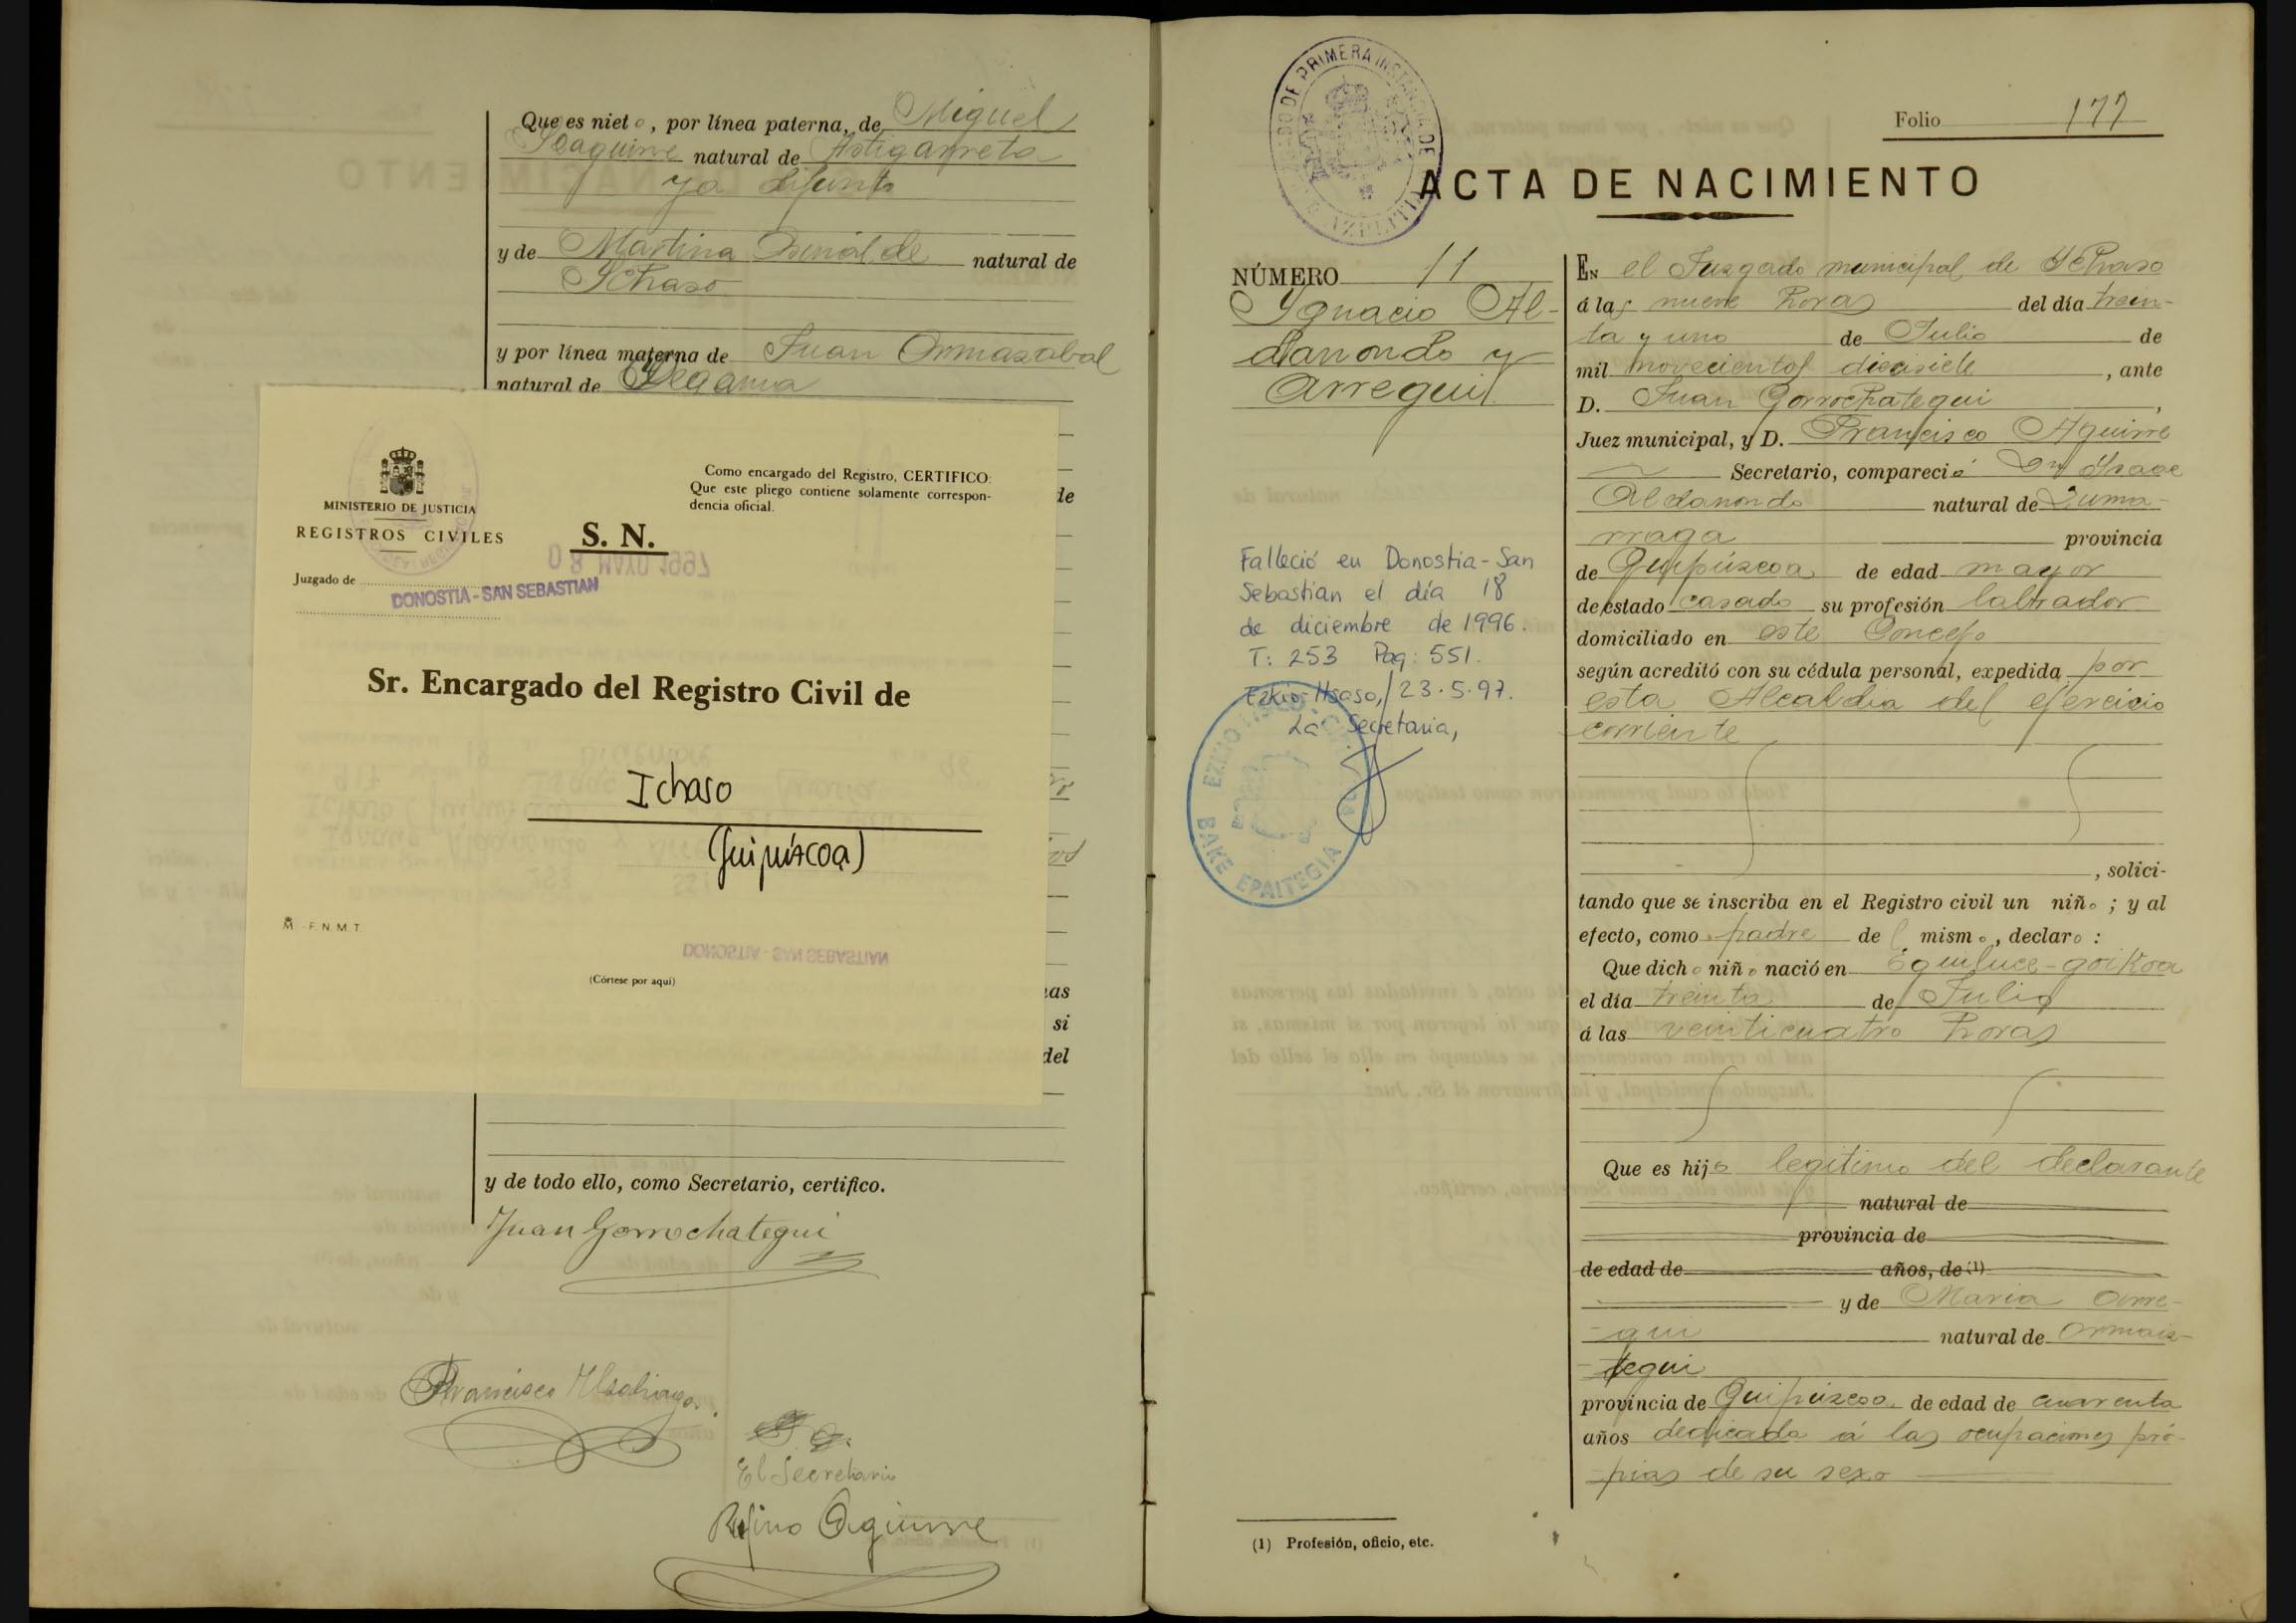 Que es nieto, por línea paterna, de Miguel
natural de Astigarreta
ya difunto
y de Martina natural de
Ichaso
y por línea materna de Juan Ormazabal
natural de Cegama
de
MINISTERIO DE JUSTICIA
REGISTROS CIVILES
Juzgado de
DONOSTIA - SAN SEBASTIAN
S. N.
08 MAYO 1997
Como encargado del Registro, CERTIFICO:
Que este pliego contiene solamente correspon-
dencia oficial.
Sr. Encargado del Registro Civil de
Ichaso
(Guipúzcoa)
F.N.M.T.
DONOSTIA - SAN SEBASTIAN
(Córtese por aquí)
nas
si
del
y de todo ello, como Secretario, certifico.
Juan Gorrochategui
Francisco
El Secretario
Rufino Aguirre
JUZGADO DE PRIMERA INSTANCIA DE AZPEITIA
Folio 177
ACTA DE NACIMIENTO
NÚMERO 11
Ygnacio Al-
danondo y
Arregui
Falleció en Donostia-San
Sebastián el día 18
de diciembre de 1996.
T: 253 Pag: 551.
Ezkio-Itsaso, 23.5.97.
La Secretaria,
BAKE EPAITEGIA
EN el Juzgado municipal de Ychaso
á las nueve horas del día trein-
ta y uno de Julio de
mil novecientos diecisiete, ante
D. Juan Gorrochategui,
Juez municipal, y D. Francisco Aguirre
Secretario, compareció
Aldanondo natural de Zuma-
rraga provincia
de Guipúzcoa de edad mayor
de estado casado su profesión labrador
domiciliado en este Concejo
según acreditó con su cédula personal, expedida por
esta Alcaldia del ejercicio
corriente
, solici-
tando que se inscriba en el Registro civil un niño; y al
efecto, como padre del mismo, declaro:
Que dicho niño nació en Eguiluce-goikoa
el día treinta de Julio
á las veinticuatro horas
Que es hijo legitimo del declarante
natural de
provincia de
de edad de años, de (1)
y de Maria Arre-
gui natural de Ormaiz-
tegui
provincia de Guipúzcoa de edad de cuarenta
años dedicada á las ocupaciones pro-
pias de su sexo
(1) Profesión, oficio, etc.